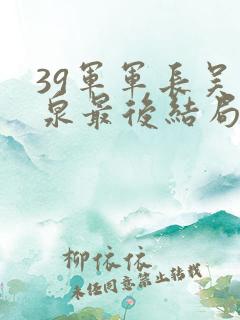 39軍軍長吴
泉最後結局
柳依依
未經同意禁止轉載